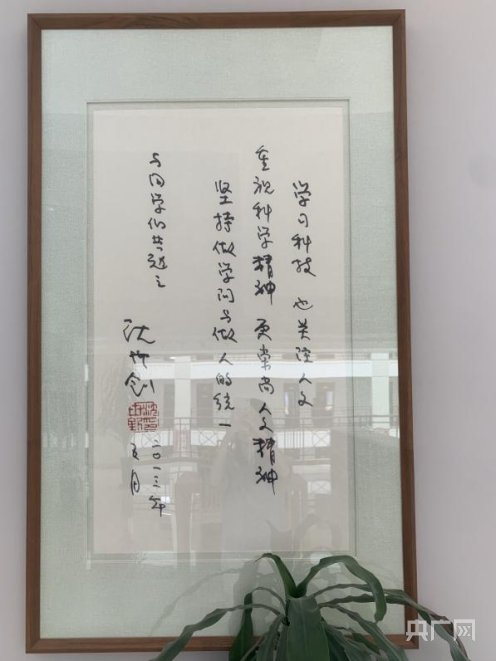 学习科技 也关注人文
重视科学精神 更崇尚人文精神
坚持做学问与做人的统一
与同学们共勉之
沈
二〇一三年
五月
央广网